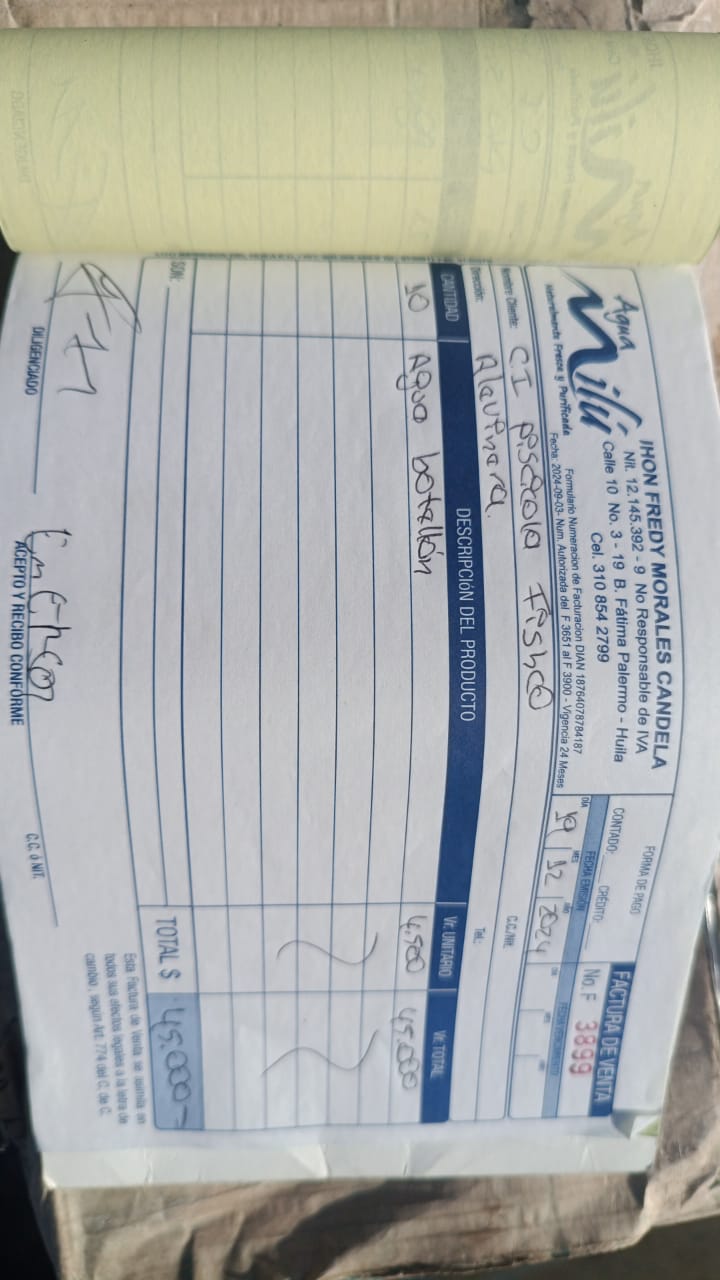 Agua
Milú
Naturalmente Fresca y Purificada
JHON FREDY MORALES CANDELA
Nit. 12.145.392 - 9 No Responsable de IVA
Calle 10 No. 3 - 19 B. Fátima Palermo - Huila
Cel. 310 854 2799
Formulario Numeracion de Facturacion DIAN 18764078784187
Fecha: 2024-09-03- Num. Autorizada del F 3651 al F 3900 - Vigencia 24 Meses
FORMA DE PAGO
CONTADO: CRÉDITO:
FACTURA DE VENTA
No. F 3899
FECHA EMISIÓN FECHA VENCIMIENTO
DÍA MES AÑO DÍA MES AÑO
19 12 2024
Nombre Cliente: C.I piscicola Fishco C.C./Nit.
Dirección: Alevinera. Tel.:
CANTIDAD DESCRIPCIóN DEL PRODUCTO Vr. UNITARIO Vr. TOTAL
10 Agua botellón 4.500 45.000
SON: TOTAL $ 45.000-
Esta Factura de Venta se asimila en
todos sus efectos legales a la letra de
cambio, según Art. 774 del C. de C.
DILIGENCIADO ACEPTO Y RECIBO CONFORME C.C. ó NIT.